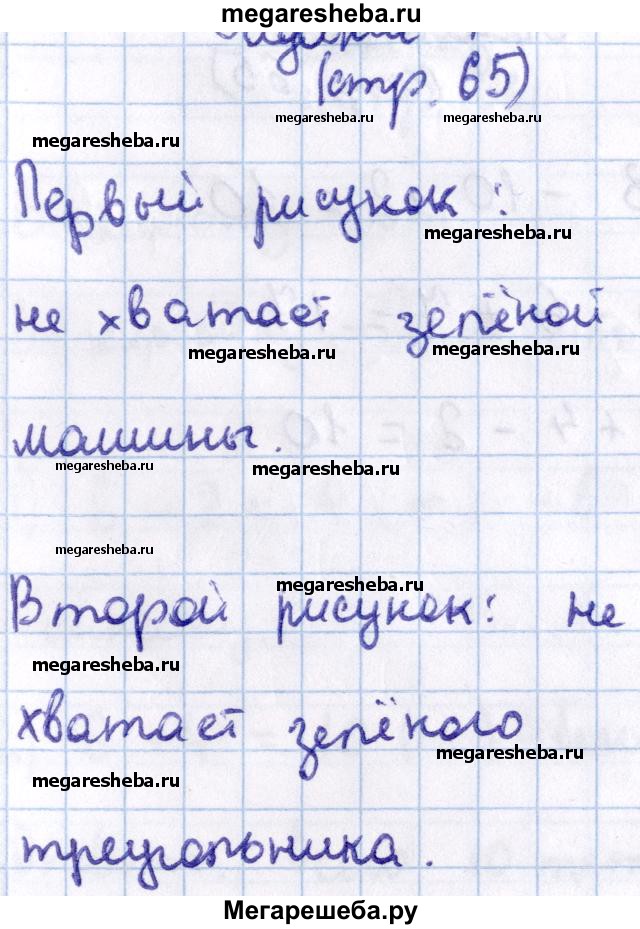 megaresheba.ru
(стр. 65)
megaresheba.ru megaresheba.ru
megaresheba.ru
Первый рисунок:
megaresheba.ru
не хватает зелёной
megaresheba.ru megaresheba.ru
машины.
megaresheba.ru megaresheba.ru
megaresheba.ru
megaresheba.ru
Второй рисунок: не
megaresheba.ru
хватает зелёного
megaresheba.ru
megaresheba.ru
треугольника.
Мегарешеба.ру